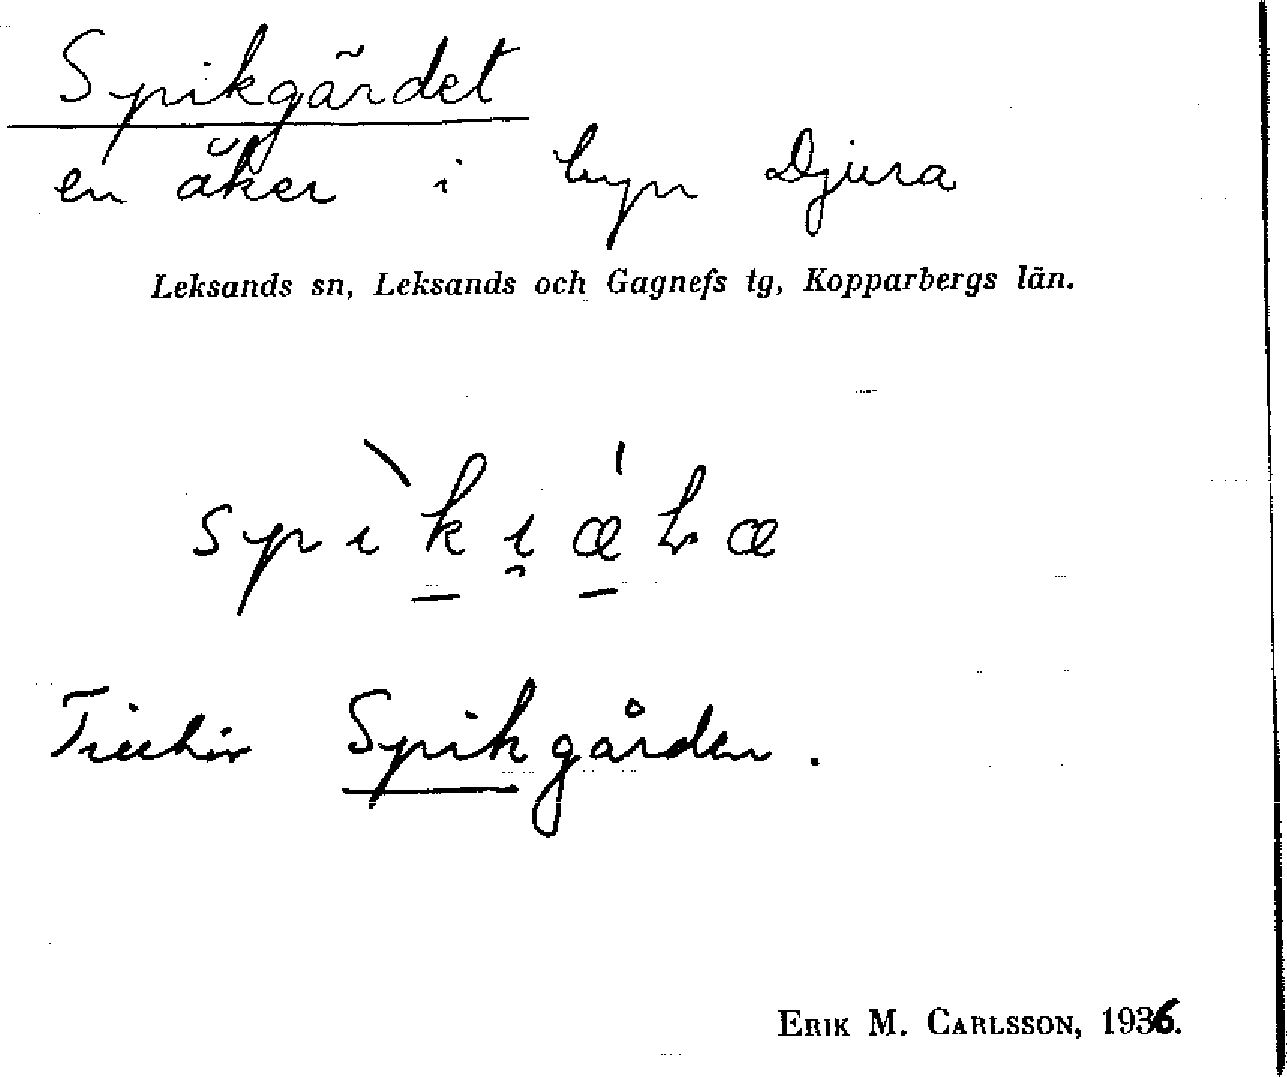 Spikgärdet
en åker i byn Djura
Leksands sn, Leksands och Gagnefs tg, Kopparbergs län.
Tillhör Spikgården.
ERIK M. CARLSSON, 1936.